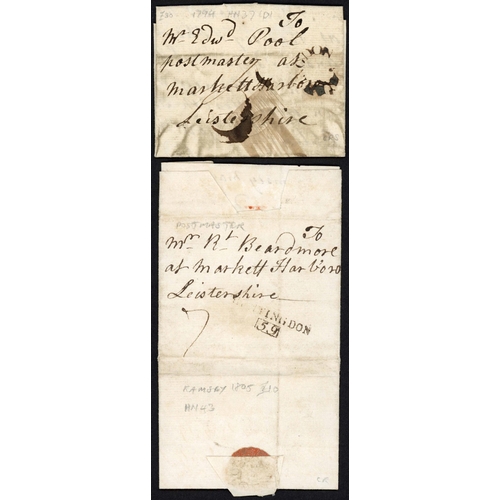 To
Mr Edwd Pool
postmaster at
markett Harboro
Leistershire
POSTMASTER
To
Mr Rt Beardmore
at markett Harboro
Leistershire
7
TINGDON
59
RAMSEY 1805 £10